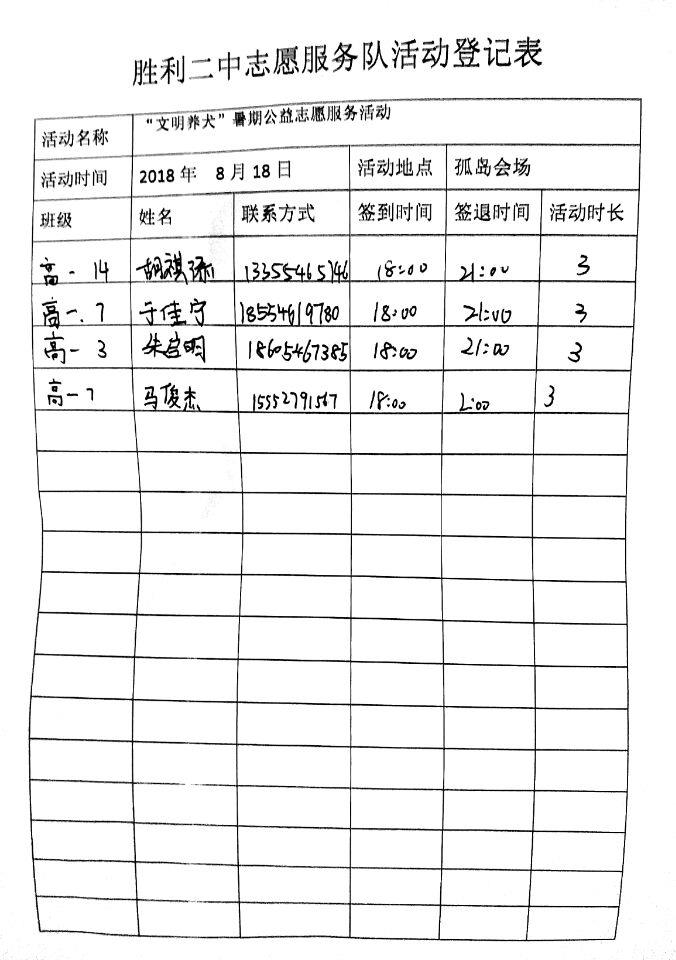 胜利二中志愿服务队活动登记表
活动名称 “文明养犬”暑期公益志愿服务活动
活动时间 2018 年 8 月 18 日 活动地点 孤岛会场
班级 姓名 联系方式 签到时间 签退时间 活动时长
高一 14 胡祺 13355465746 18:00 21:00 3
高一.7 于佳宁 18554619780 18:00 21:00 3
高一 3 朱启明 18605467385 18:00 21:00 3
高一7 马俊杰 15552791567 18:00 :00 3